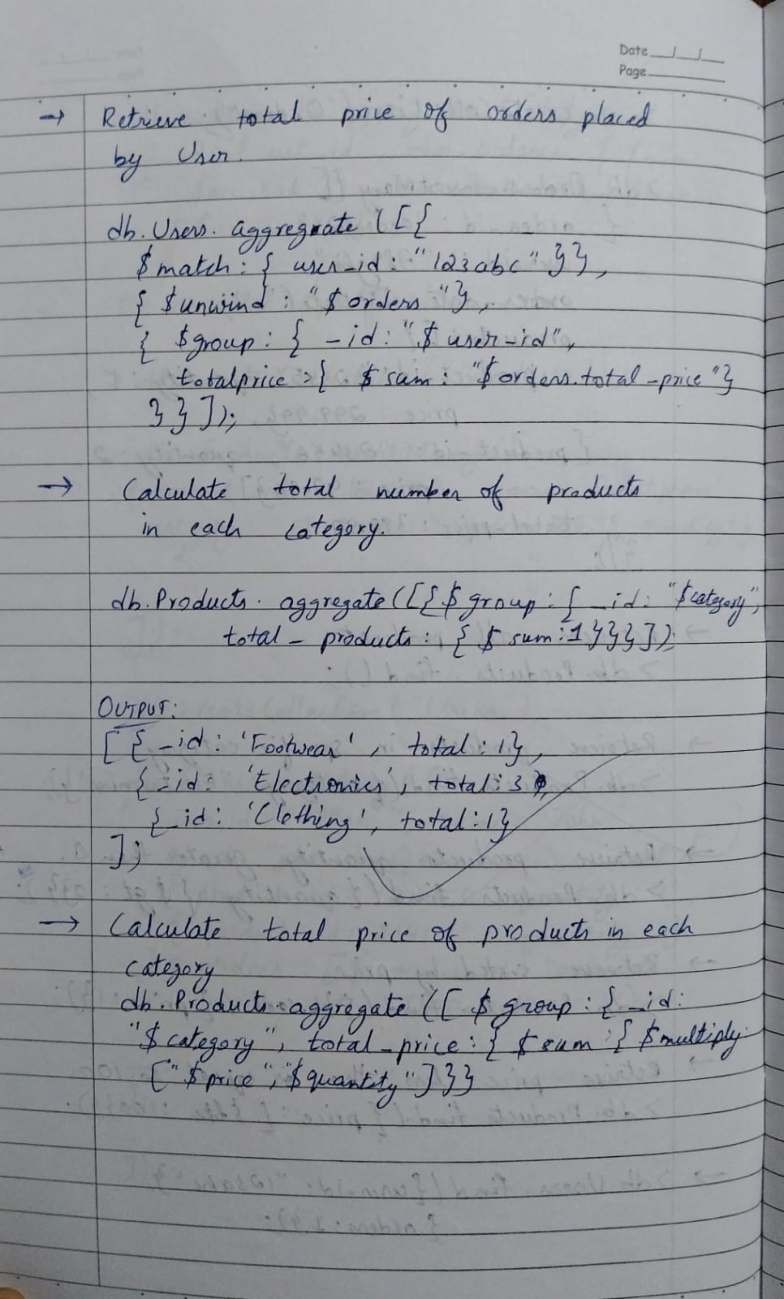 Date __/__/__
Page ______
→ Retrieve total price of orders placed
by User.
db.Users.aggregate ([{
$match: { user_id: "123abc" }},
{ $unwind : "$orders "},
{ $group: { _id: "$user_id",
totalprice :{ $ sum: "$orders.total_price"}
}}]);
→ Calculate total number of products
in each category.
db.Products.aggregate([{$group: {_id: "$category",
total_products: {$ sum:1}}}]);
OUTPUT:
[ {_id: 'Footwear', total:1},
{_id: 'Electronics', total:3},
{_id: 'Clothing', total:1}
];
→ Calculate total price of products in each
category
db.Products.aggregate ([ $group: {_id:
"$category", total_price: { $sum:{ $multiply:
["$price","$quantity"]}}